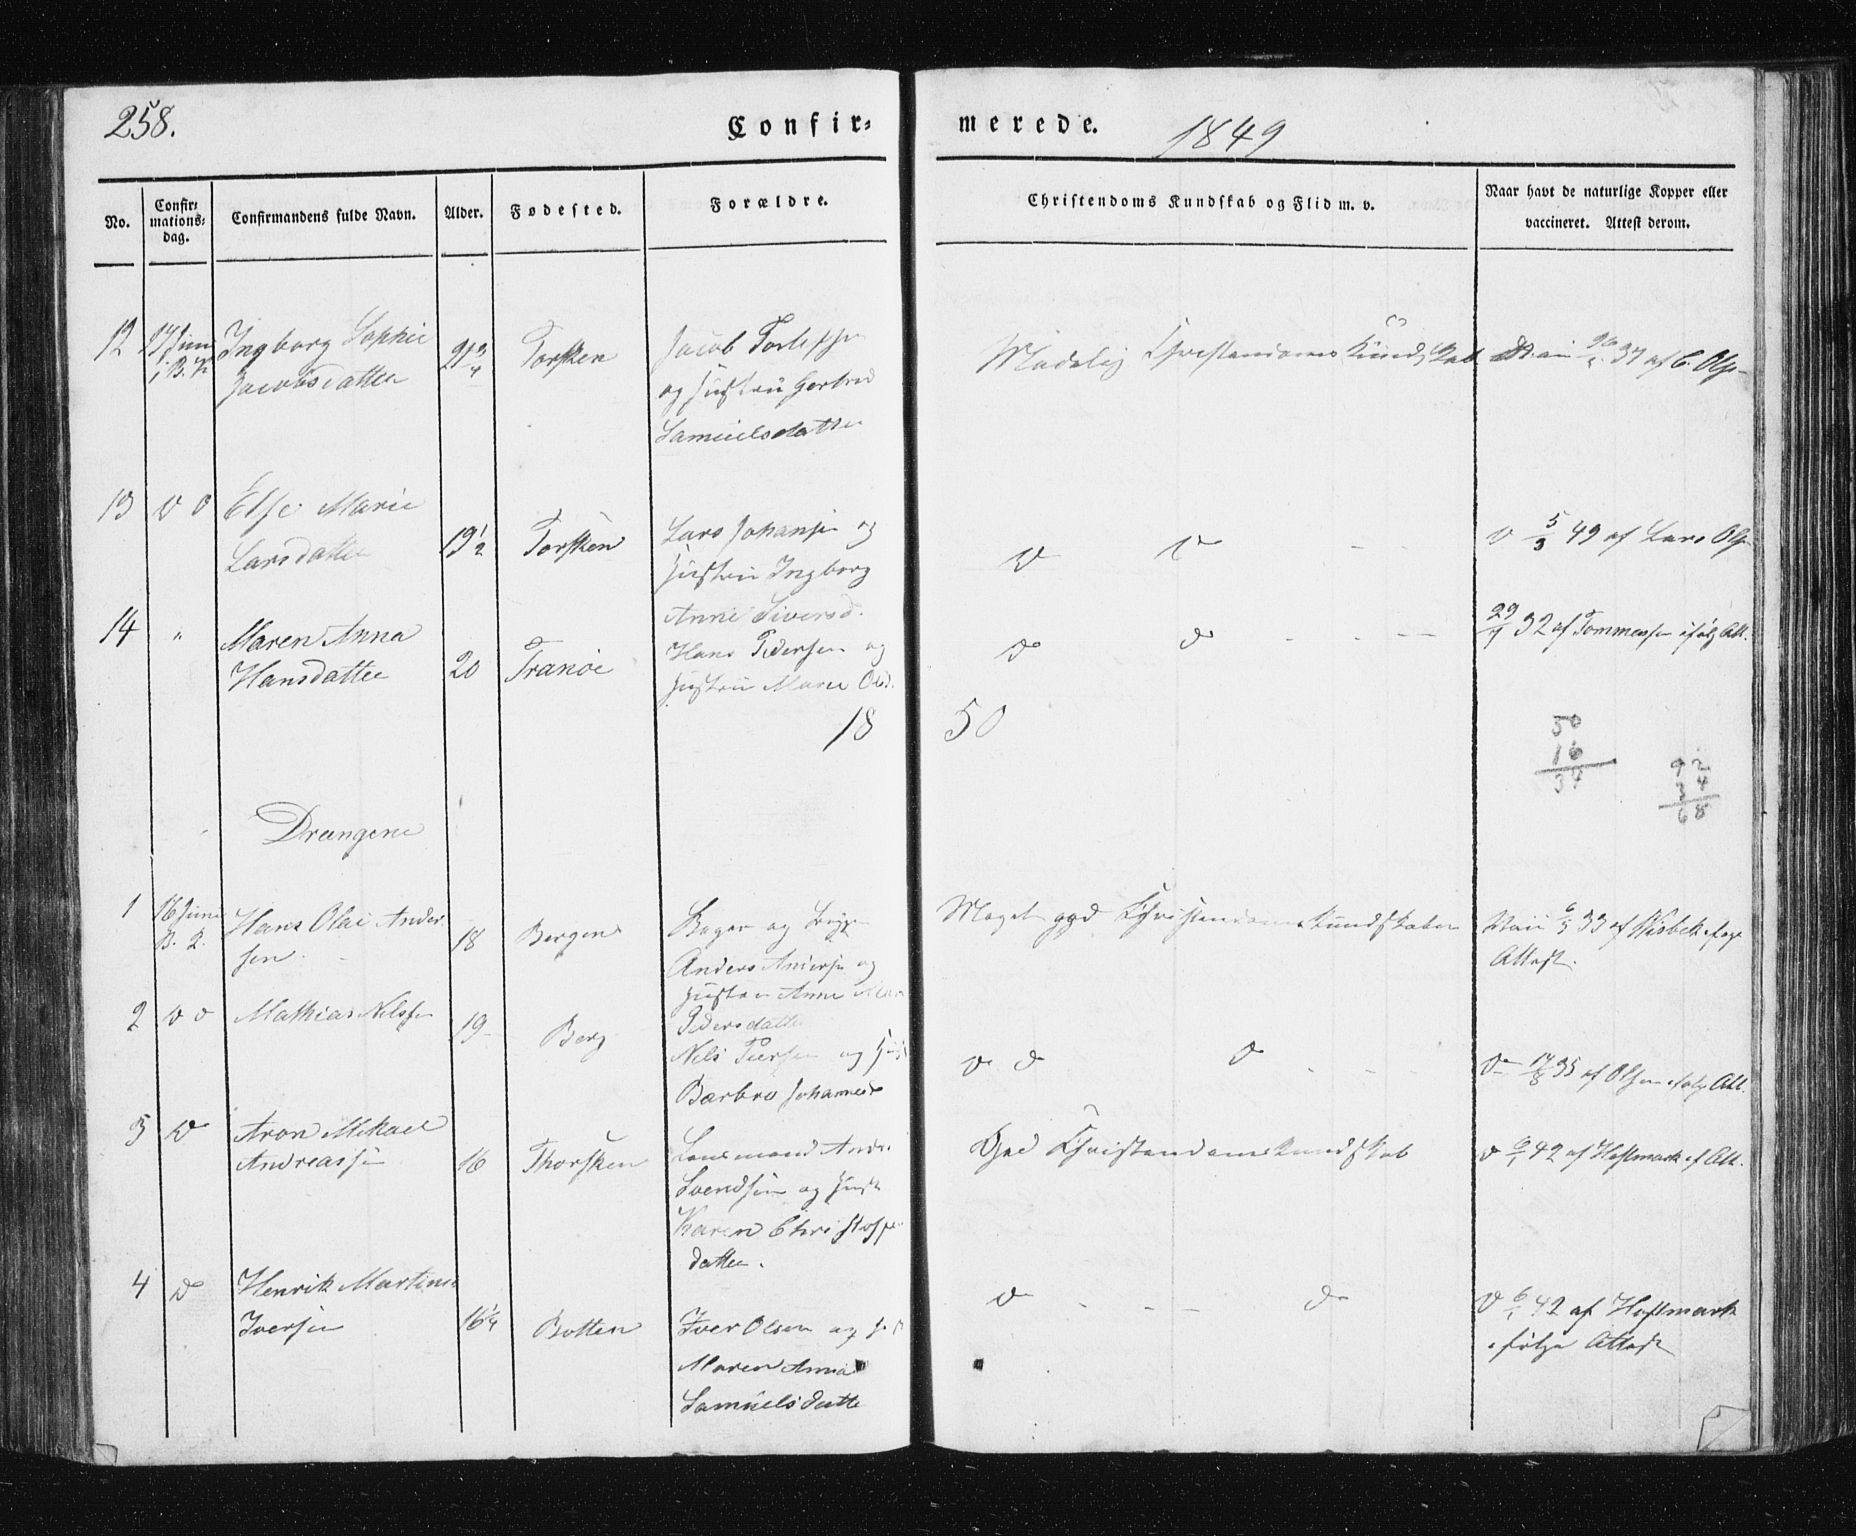 258.
Confir=
merede.
1849
No.
Confir=
mations=
dag.
Confirmandens fulde Navn.
Alder.
Fødested.
Forældre.
Christendoms Kundskab og Flid m. v.
Naar havt de naturlige Kopper eller
vaccineret. Attest derom.
12
17 Juni
Ingborg Sophie
Jacobsdatter
21 3/4
Torsken
Jacob
og Hustru Gertrud
Samuelsdatter
Maadelig Christendoms Kundskab
37 af C. Olsen
13
Else Marie
Larsdatter
19 1/2
Torsken
Lars Johansen og
Hustru Ingborg
Anne Siversd.
5/3 49 af Lars Ols
14
"
Maren Anna
Hansdatter
20
Tranöe
Hans Pedersen og
Hustru Maren Olsd.
29/7 32 af Tommesen ifølg Att.
1850
50
16
34
92
34
68
Drengene
1
16 Juni
Hans Olai Ander
sen
18
Bergen
Bager og
Anders Andersen og
Hustru Anne
Pedersdatter
Meget god Christendomskundskaber
33 af Wisbek
Attest.
2
Mathias Nilssen
19
Berg
Nils Persen og
Barbro Johannesd
35 af Olsen ifølg Att.
3
Aron Mikael
Andreassen
16
Thorsken
Lensmand Andr.
Svendsen og Hust
Karen Christoffer
datter.
God Christendomskundskab
42 af Hoffmark if Att.
4
Henrik Martinus
Iversen
16 1/4
Botten
Iver Olsen og
Maren Anna
Samuelsdatter
6/1 42 af Hoffmark
ifølge Attest